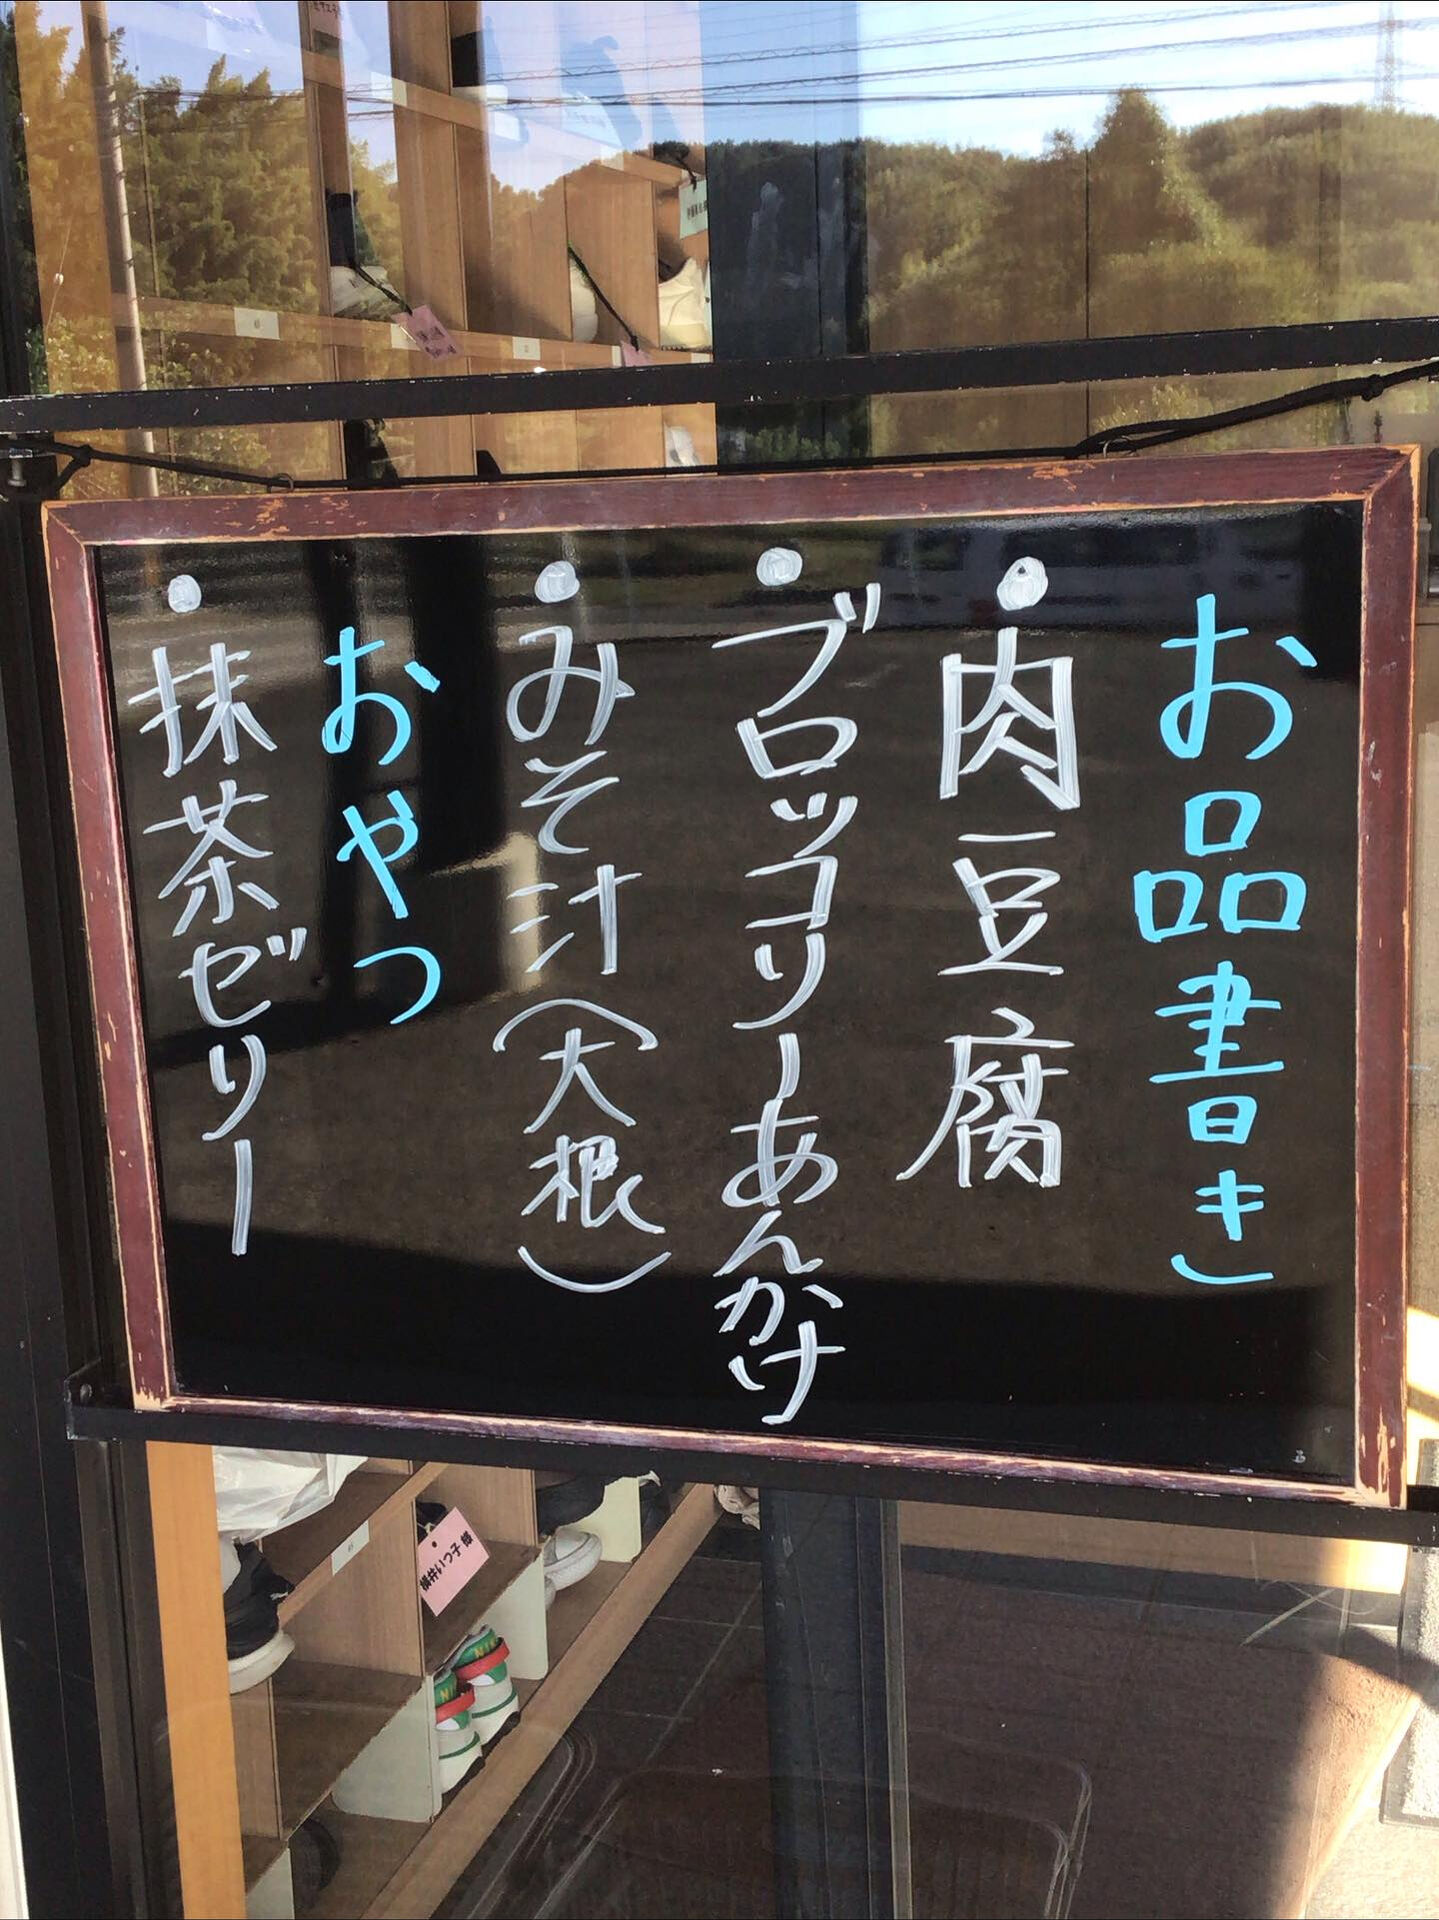 お品書き
●肉豆腐
●ブロッコリーあんかけ
●みそ汁(大根)
おやつ
●抹茶ゼリー
NIKE